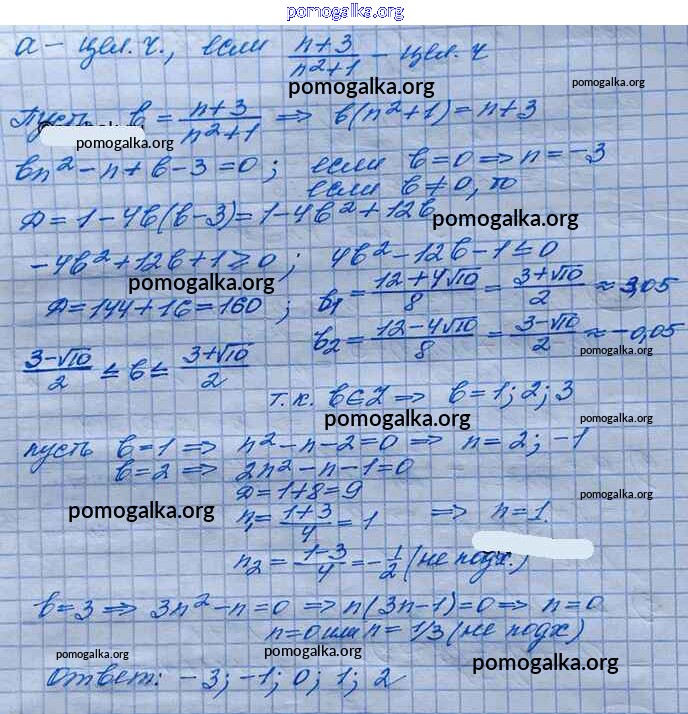 pomogalka.org
a - цел. ч., если (n+3)/(n²+1) - цел. ч
pomogalka.org
pomogalka.org
Пусть b = (n+3)/(n²+1) => b(n²+1) = n+3
pomogalka.org
bn² - n + b - 3 = 0; если b = 0 => n = -3
если b ≠ 0, то
Д = 1 - 4b(b-3) = 1 - 4b² + 12b
pomogalka.org
-4b² + 12b + 1 ≥ 0; 4b² - 12b - 1 ≤ 0
pomogalka.org
Д = 144 + 16 = 160; b₁ = (12+4√10)/8 = (3+√10)/2 ≈ 3,05
b₂ = (12-4√10)/8 = (3-√10)/2 ≈ -0,05
pomogalka.org
(3-√10)/2 ≤ b ≤ (3+√10)/2
т.к. b∈Z => b = 1; 2; 3
pomogalka.org
pomogalka.org
пусть b = 1 => n² - n - 2 = 0 => n = 2; -1
b = 2 => 2n² - n - 1 = 0
Д = 1 + 8 = 9
pomogalka.org
pomogalka.org
n₁ = (1+3)/4 = 1 => n = 1.
n₂ = (1-3)/4 = -1/2 (не подх.)
b = 3 => 3n² - n = 0 => n(3n-1) = 0 => n = 0
n = 0 или n = 1/3 (не подх)
pomogalka.org
pomogalka.org
pomogalka.org
Ответ: -3; -1; 0; 1; 2